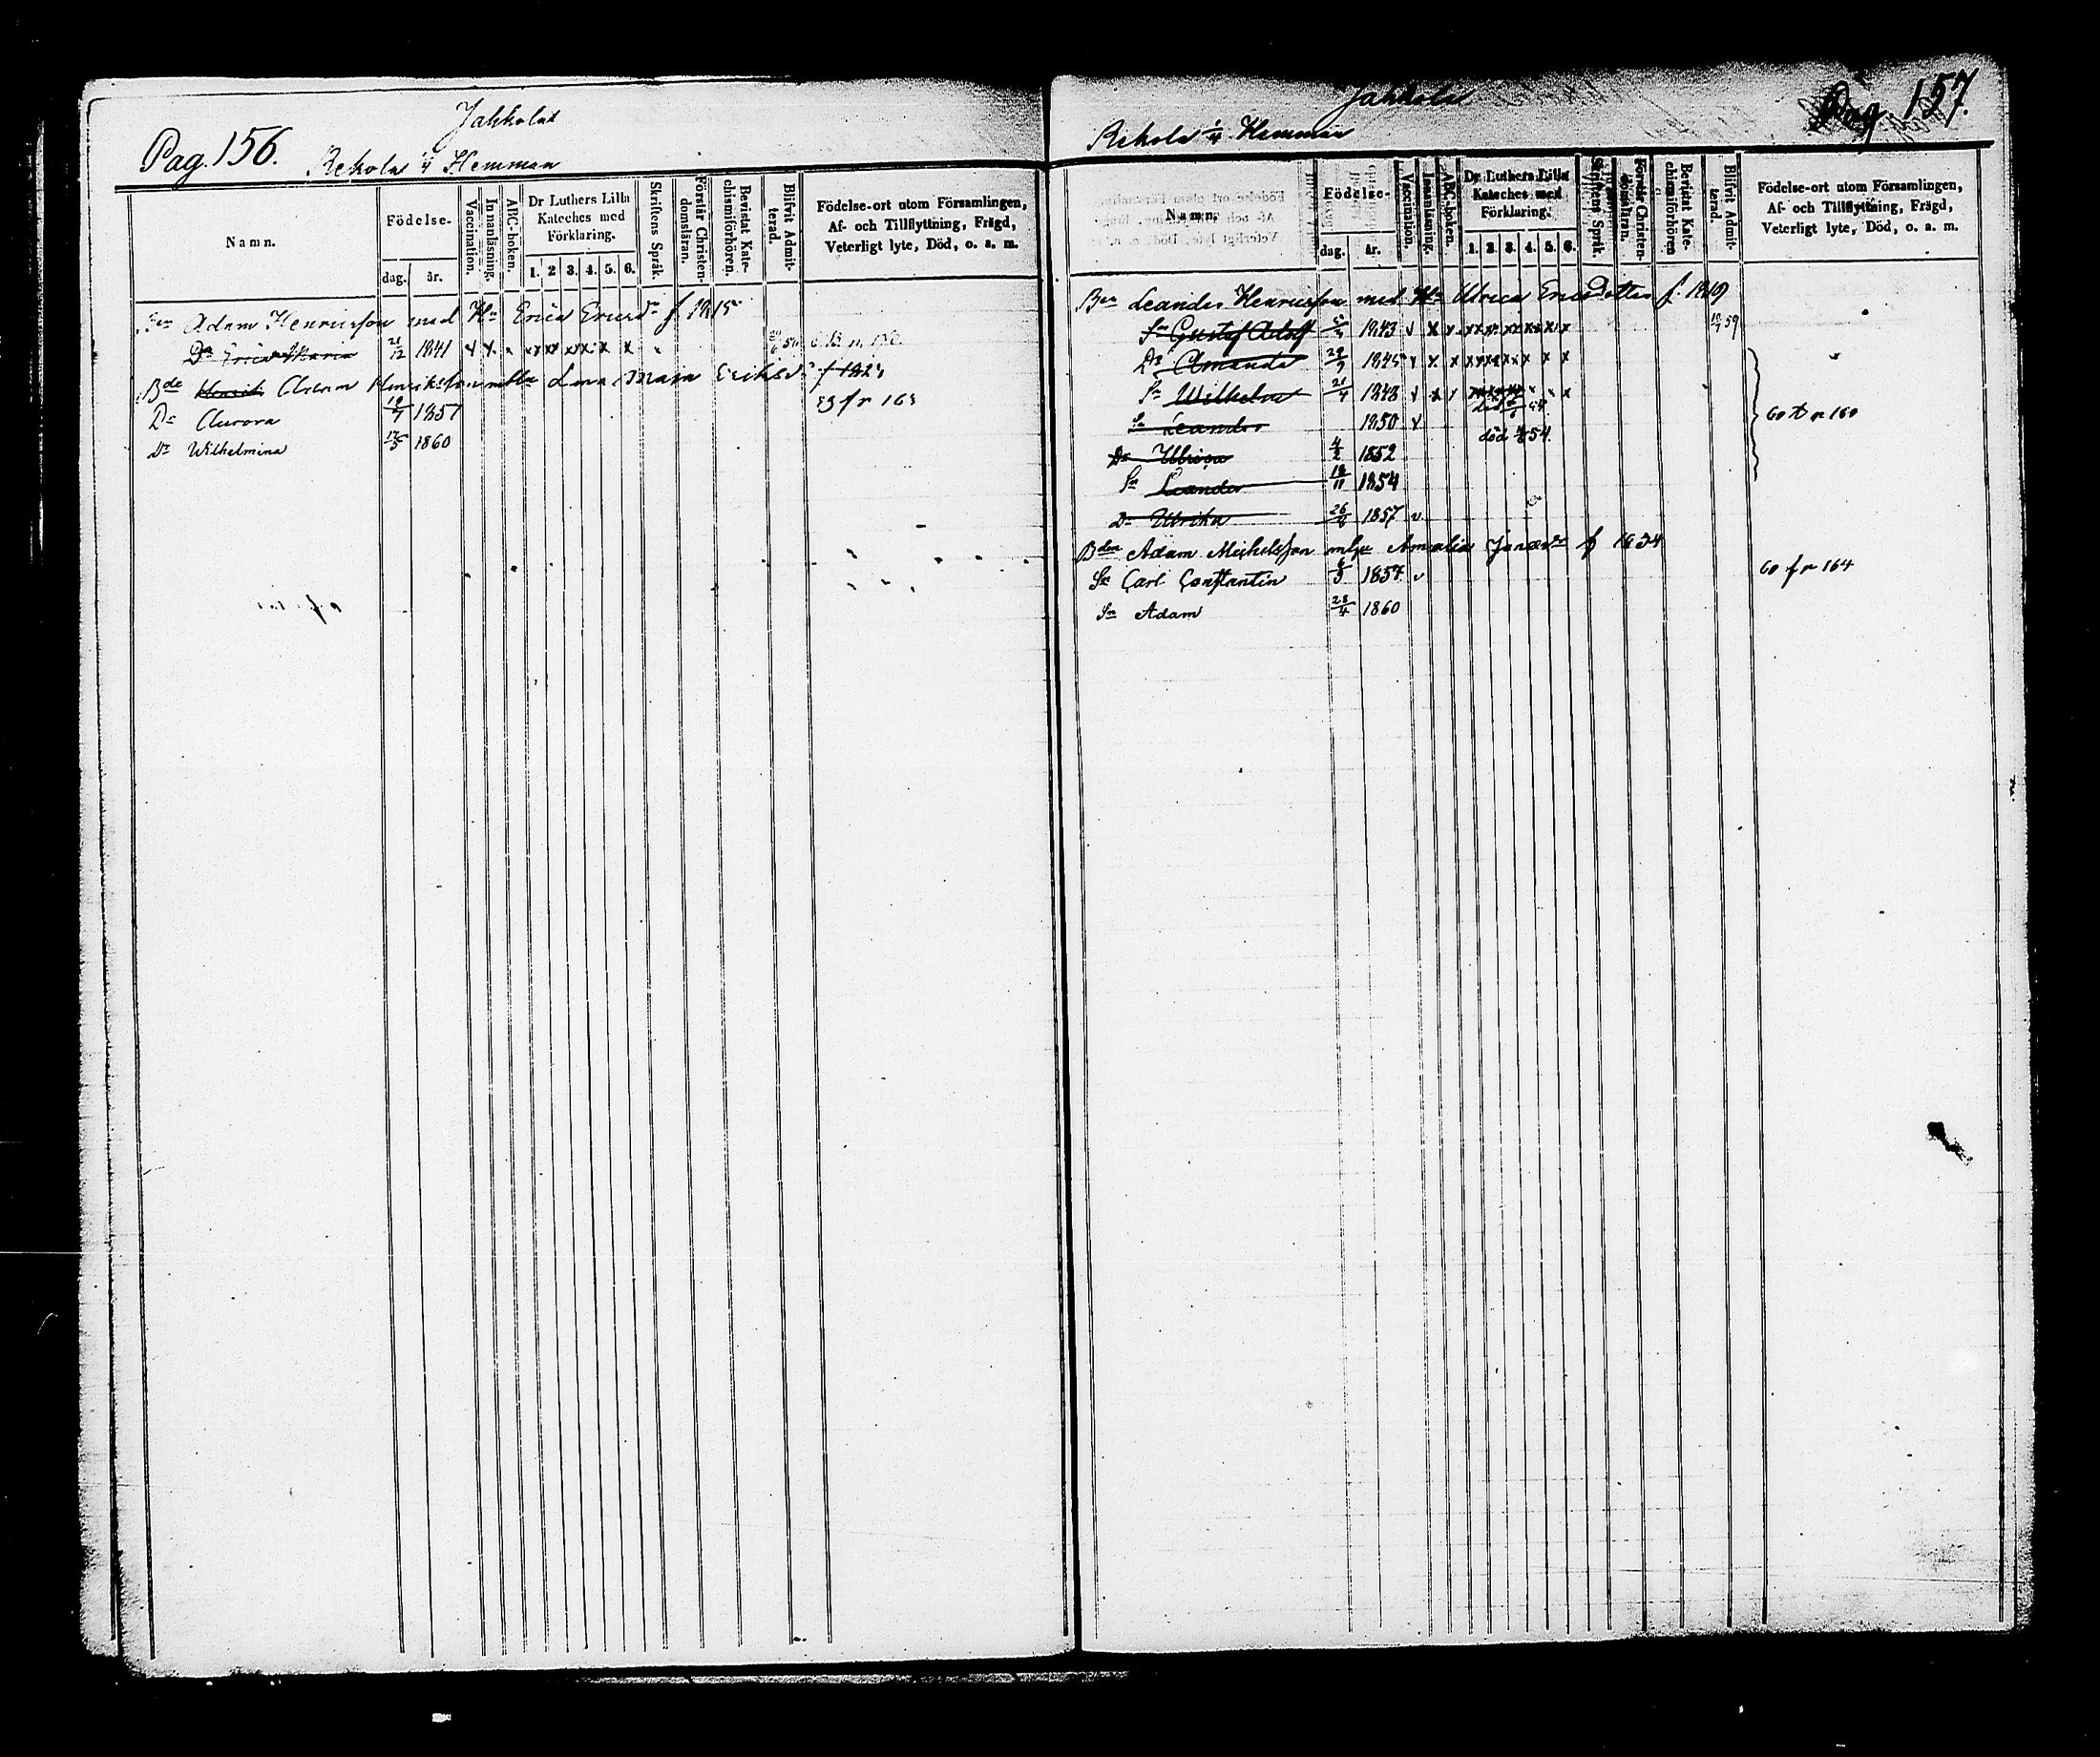 Pag. 156.
Jakkola
Rekola ¼ Hemman
Namn.
Födelse-
dag. år.
Vaccination.
Innanläsning.
ABC-boken.
Dr Luthers Lilla Kateches med Förklaring.
1. 2 3. 4. 5. 6.
Skriftens Språk.
Förstår Christendomsläran.
Bevistat Katechismiförhören.
Blifvit Admitterad.
Födelse-ort utom Församlingen,
Af- och Tillflyttning, Frägd,
Veterligt lyte, Död, o. a. m.
Bon Adam Henricsson med Hu Erica Ericsdr f 1815
Dr Erica Maria 21/12 1841 v x x x x x x x x
Bde Henrik Adam Henriksson m hu Lena Maja Eriksdr f 1825
Dr Aurora 1857
Dr Wilhelmina 1860
Pag 157.
Jakkola
Rekola ¼ Hemman
Namn.
Födelse-
dag. år.
Vaccination.
Innanläsning.
ABC-boken.
Dr Luthers Lilla Kateches med Förklaring.
1. 2. 3. 4. 5. 6.
Skriftens Språk.
Förstår Christendomsläran.
Bevistat Katechismiförhören
Blifvit Admitterad.
Födelse-ort utom Församlingen,
Af- och Tillflyttning, Frägd,
Veterligt lyte, Död, o. a. m.
Bon Leander Henricsson med Hu Ulrica Ericsdotter f. 1819
Sn Gustaf Adolf 1843 v x x x x x x x x 59
Dr Amanda 1845 v x x x x x x x x
Sn Wilhelm 21/4 1848 v x x
Sn Leander 1850 v
död 54.
Dr Ulrica 4/2 1852
60 t p 160
Sn Leander 18/11 1854
Dr Ulrika 26/8 1857 v
Bden Adam Michelsson m hu Amalia Jonasdr f 1834
60 fr 164
Sn Carl Constantin 1857 v
Sn Adam 28/4 1860